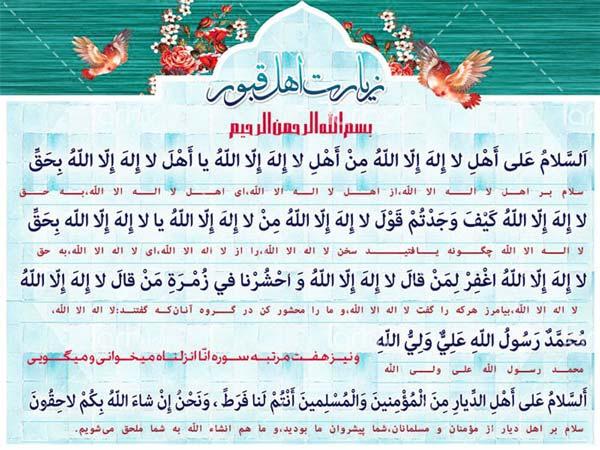 زیارت اهل قبور
بسم الله الرحمن الرحیم
اَلسَّلامُ عَلى أَهْلِ لا إِلهَ إِلّا اللّهُ مِنْ أَهْلِ لا إِلهَ إِلّا اللّهُ يا أَهْلَ لا إِلهَ إِلّا اللّهُ بِحَقِّ
سلام بر اهل لا اله الا الله،از اهل لا اله الا الله،ای اهل لا اله الا الله،به حق
لا إِلهَ إِلّا اللّهُ كَيْفَ وَجَدْتُمْ قَوْلَ لا إِلهَ إِلّا اللّهُ مِنْ لا إِلهَ إِلّا اللّهُ يا لا إِلهَ إِلّا اللّه بِحَقِّ
لا اله الا الله چگونه یافتید سخن لا اله الا الله،را از لا اله الا الله،ای لا اله الا الله،به حق
لا إِلهَ إِلّا اللّهُ اغْفِرْ لِمَنْ قالَ لا إِلهَ إِلّا اللّهُ وَ احْشُرْنا في زُمْرَةِ مَنْ قالَ لا إِلهَ إِلّا اللّهُ
لا اله الا الله،بیامرز هرکه را گفت لا اله الا الله،و ما را محشور کن در گروه آنان‌که گفتند:لا اله الا الله،
مُحَمَّدٌ رَسُولُ اللّهِ عَلِيٌّ وَلِيُّ اللّهِ
ونیز هفت مرتبه سوره انّا انزلناه میخوانی و میگویی
محمد رسول الله علی ولی الله
أَلسَّلامُ عَلى أَهْلِ الدِّيارِ مِنَ الْمُؤْمِنينَ وَالْمُسْلِمينَ أَنْتُمْ لَنا فَرَطٌ ، وَنَحْنُ إِنْ شاءَ اللّهُ بِكُمْ لاحِقُونَ
سلام بر اهل دیار از مؤمنان و مسلمانان،شما پیشروان ما بودید،و ما هم انشاء الله به شما ملحق می‌شویم.